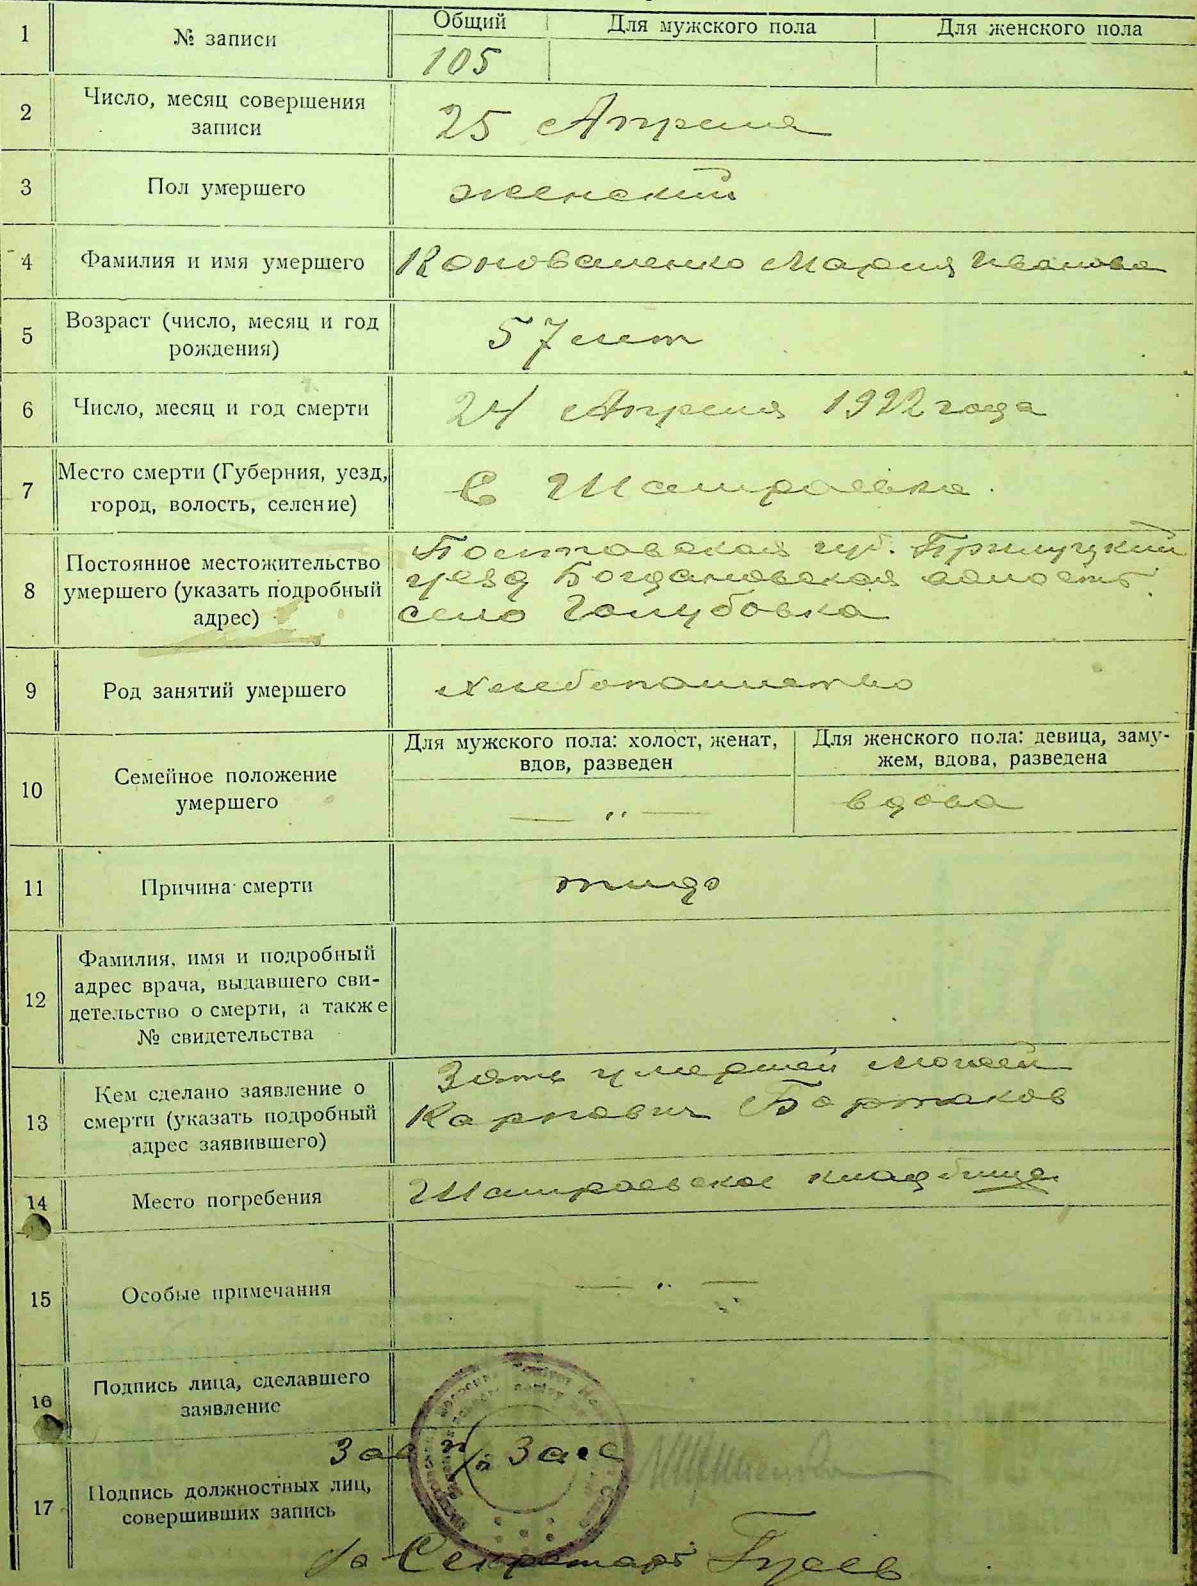 1 № записи Общий Для мужского пола Для женского пола
105
2 Число, месяц совершения
записи
25 Апреля
3 Пол умершего женский
4 Фамилия и имя умершего Коноваленко Мария Иванова
5 Возраст (число, месяц и год
рождения)
57 лет
6 Число, месяц и год смерти 24 Апреля 1922 года
7 Место смерти (Губерния, уезд,
город, волость, селение)
С Шатроевка
8 Постоянное местожительство
умершего (указать подробный
адрес)
Полтавская губ. Прилуцкий
уезд Богдановская волость
село Голубовка
9 Род занятий умершего хлебопашество
10 Семейное положение
умершего
Для мужского пола: холост, женат,
вдов, разведен
— „ —
Для женского пола: девица, заму-
жем, вдова, разведена
вдова
11 Причина смерти тиф
12 Фамилия, имя и подробный
адрес врача, выдавшего сви-
детельство о смерти, а также
№ свидетельства
13 Кем сделано заявление о
смерти (указать подробный
адрес заявившего)
Зять умершей
Карпович
14 Место погребения кладбище
15 Особые примечания — „ —
16 Подпись лица, сделавшего
заявление
17 Подпись должностных лиц,
совершивших запись
Зав п/о Загс
Секретарь Гусев